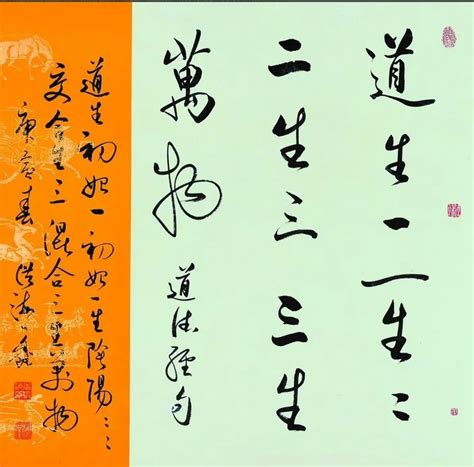 道生一一生二
二生三三生
萬物 道德經句
道生初始一初始一生陰陽二二
交合生三混合三生萬物
庚寅春